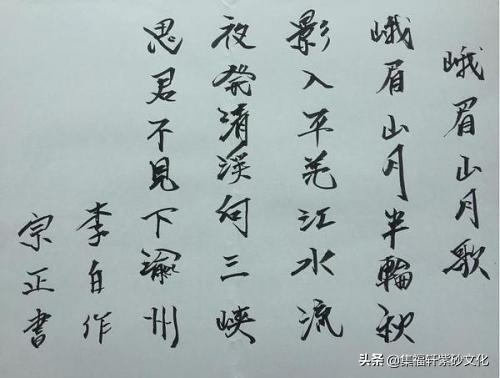 峨眉山月歌
峨眉山月半輪秋
影入平羌江水流
夜發清溪向三峽
思君不見下渝州
李白作
宗正書
头条 @集福轩紫砂文化